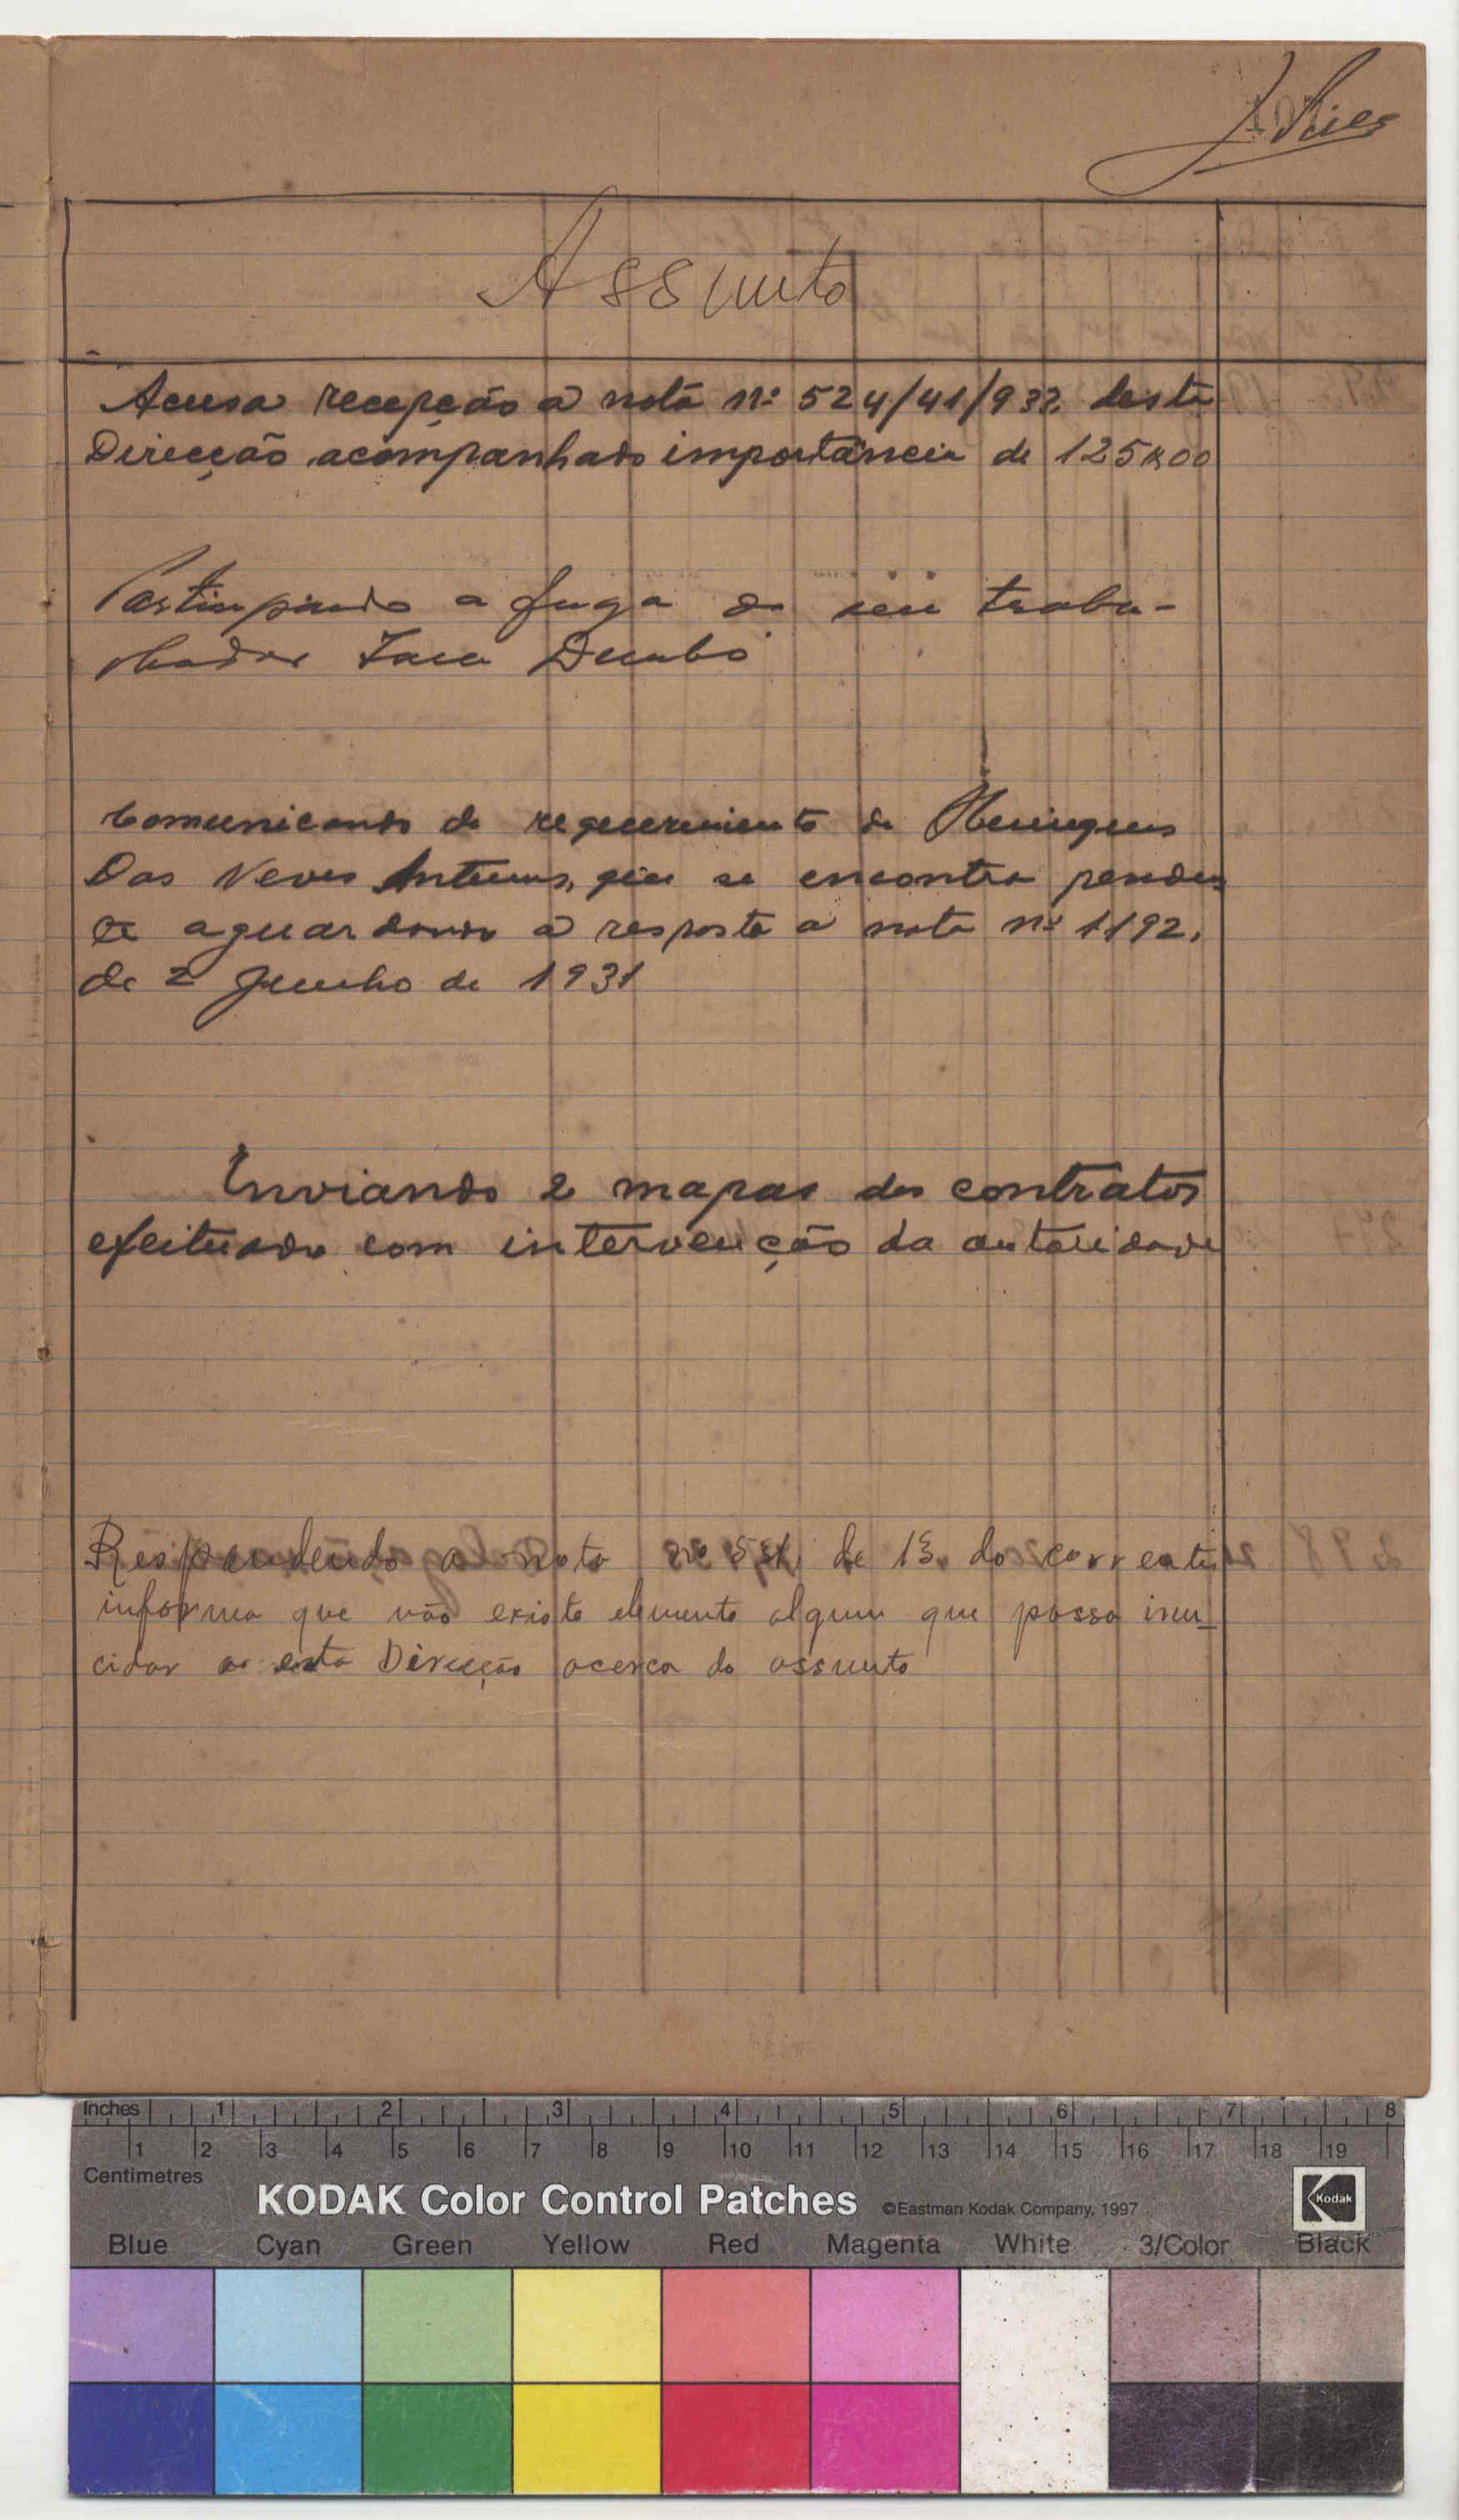 Assunto
Acusa recepção a nota nº 524/41/932 desta
Direcção acompanhado importância de 125$00
Participando a fuga do seu traba-
lhador
Comunicando do requerimento de
Das Neves Antunes, que se encontra penden
te aguardando a resposta a nota nº 1192,
de 2 Junho de 1931
Enviando 2 mapas dos contratos
efeituado com intervenção da autoridade
Respondendo a nota nº de 13 do corrente
informa que não existe elemento algum que possa inu_
cidar a esta Direcção acerca do assunto
Inches 1 2 3 4 5 6 7 8
1 2 3 4 5 6 7 8 9 10 11 12 13 14 15 16 17 18 19
Centimetres
KODAK Color Control Patches ©Eastman Kodak Company, 1997 Kodak
Blue Cyan Green Yellow Red Magenta White 3/Color Black